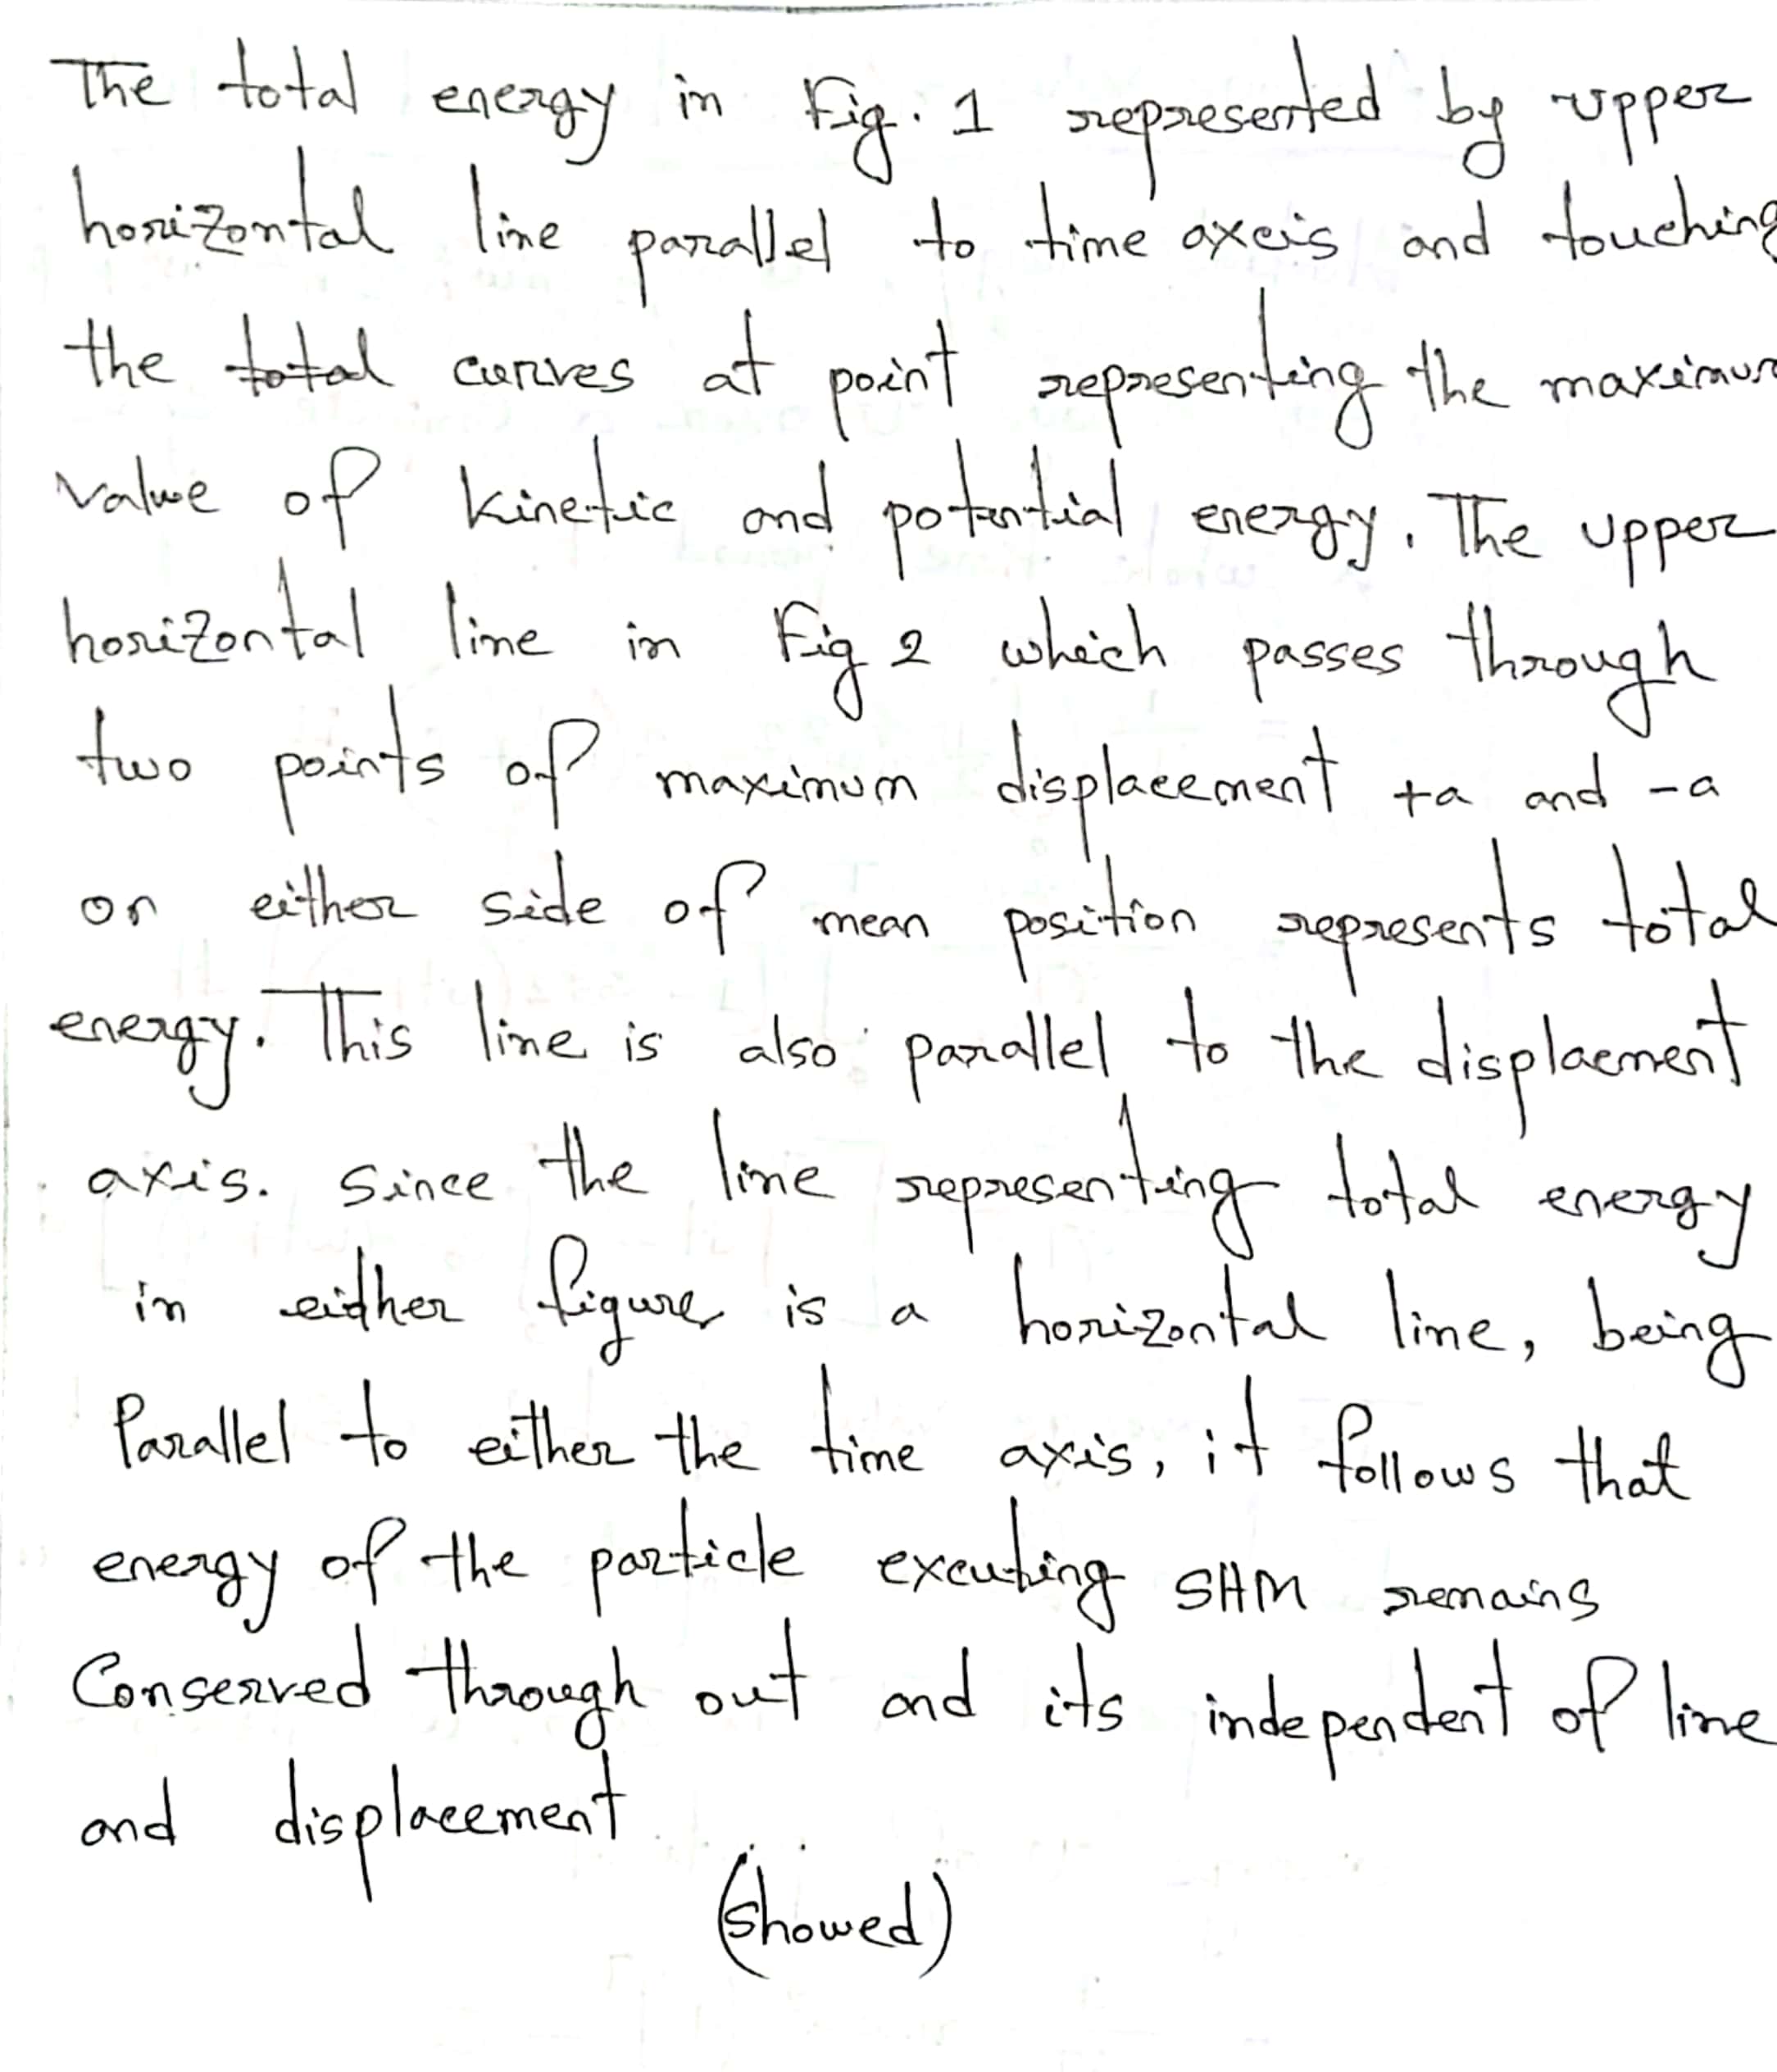 The total energy in Fig. 1 represented by upper
horizontal line parallel to time axeis and touching
the total curves at point representing the maximum
value of kinetic and potential energy. The upper
horizontal line in Fig 2 which passes through
two points of maximum displacement +a and -a
on either side of mean position represents total
energy. This line is also parallel to the displacment
axis. Since the line representing total energy
in either figure is a horizontal line, being
Parallel to either the time axis, it follows that
energy of the particle excuting SHM remains
Conserved through out and its independent of line
and displacement
(Showed)